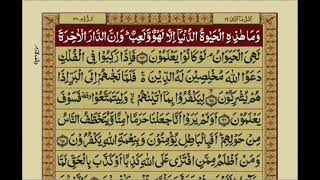 وَمَا هٰذِهِ الْحَيٰوةُ الدُّنْيَآ اِلَّا لَهْوٌ وَّلَعِبٌ ؕ وَاِنَّ الدَّارَ الْاٰخِرَةَ
لَهِيَ الْحَيَوَانُ ۘ لَوْ كَانُوْا يَعْلَمُوْنَ فَاِذَا رَكِبُوْا فِي الْفُلْكِ
دَعَوُا اللّٰهَ مُخْلِصِيْنَ لَهُ الدِّيْنَ
هُمْ يُشْرِكُوْنَ لِيَكْفُرُوْا بِمَآ اٰتَيْنٰهُمْ ۙ وَلِيَتَمَتَّعُوْا ۥ فَسَوْفَ
يَعْلَمُوْنَ اَوَلَمْ يَرَوْا اَنَّا جَعَلْنَا حَرَمًا اٰمِنًا وَّيُتَخَطَّفُ النَّاسُ
مِنْ حَوْلِهِمْ ؕ اَفَبِالْبَاطِلِ يُؤْمِنُوْنَ وَبِنِعْمَةِ اللّٰهِ يَكْفُرُوْنَ
وَمَنْ اَظْلَمُ مِمَّنِ افْتَرٰى عَلَى اللّٰهِ كَذِبًا اَوْ كَذَّبَ بِالْحَقِّ لَمَّا